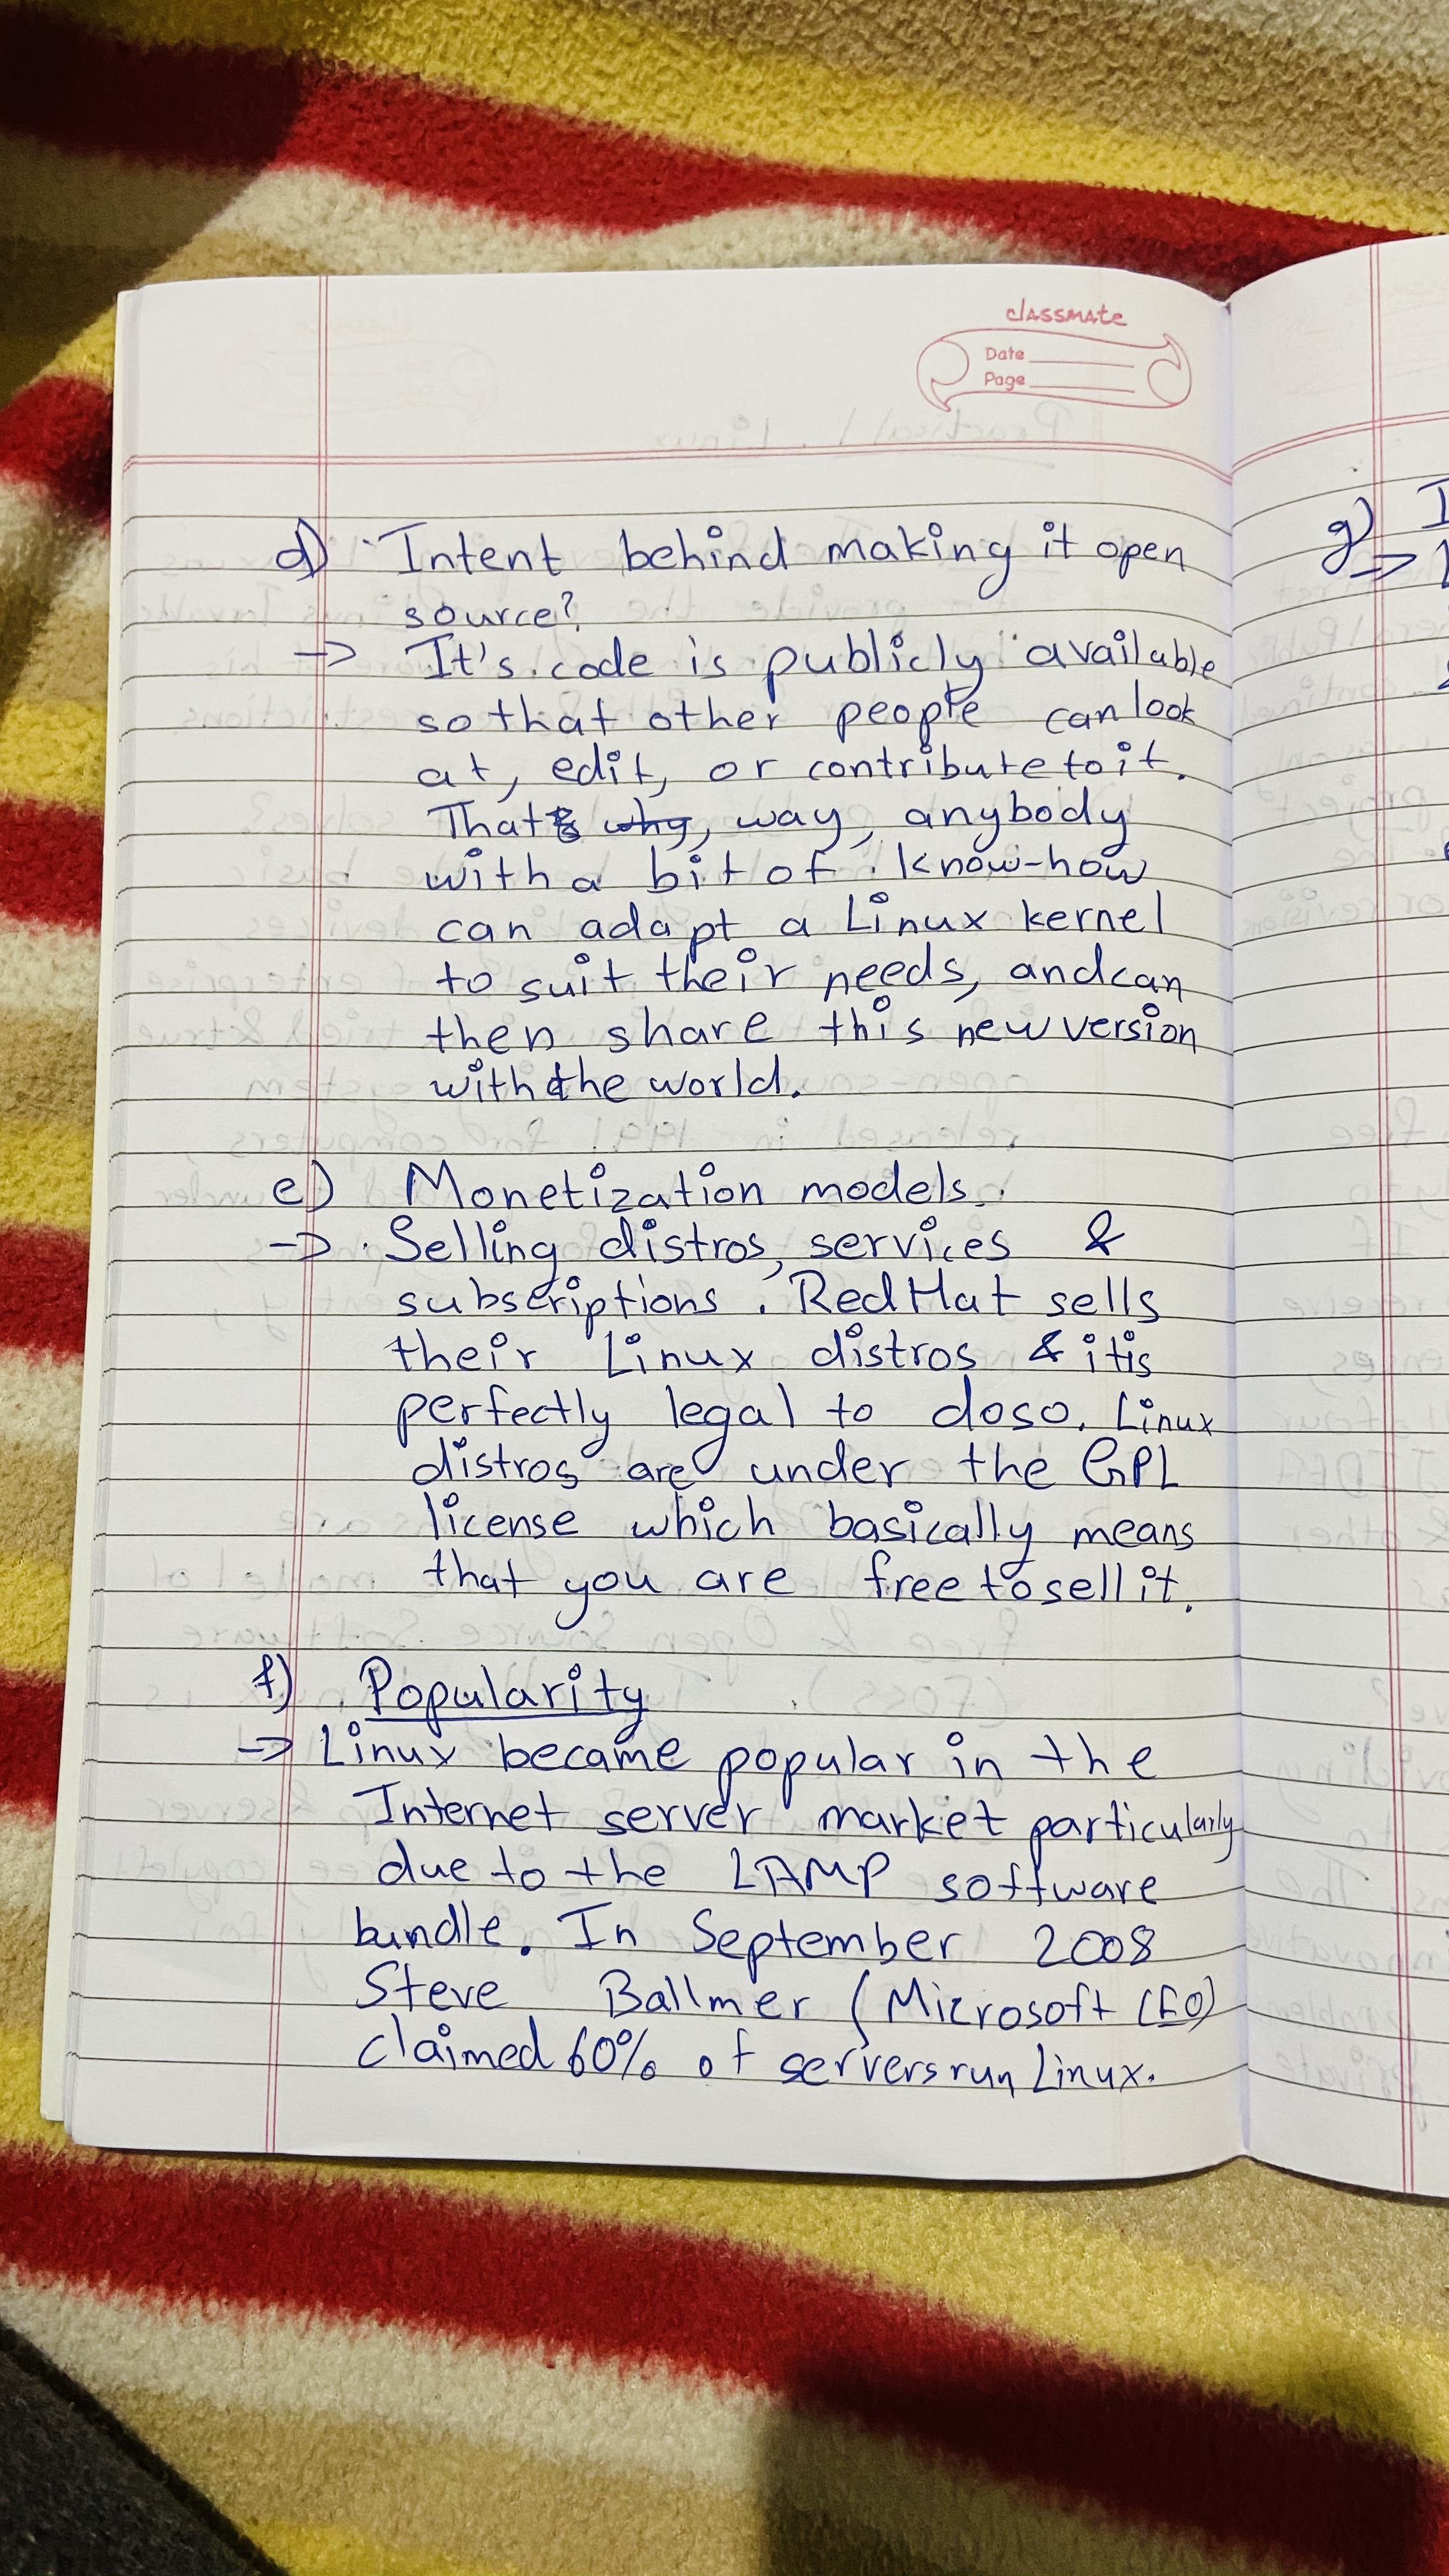 classmate
Date
Page
d) Intent behind making it open
source?
→ It's code is publicly available
so that other people can look
at, edit, or contribute to it.
That's why, way, anybody
with a bit of know-how
can adapt a Linux kernel
to suit their needs, and can
then share this new version
with the world.
e) Monetization models.
→ Selling distros, services &
subscriptions. RedHat sells
their Linux distros & it is
perfectly legal to do so. Linux
distros are under the GPL
license which basically means
that you are free to sell it.
f) Popularity
→ Linux became popular in the
Internet server market particularly
due to the LAMP software
bundle. In September 2008
Steve Ballmer (Microsoft CEO)
claimed 60% of servers run Linux.
g) I
→